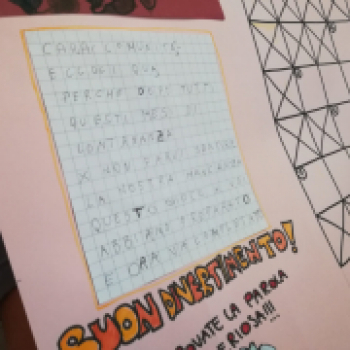 CARA COMUNITÀ,
ECCOCI QUA,
PERCHÉ DOPO TUTTI
QUESTI MESI DI
LONTANANZA
X NON FARVI SENTIRE
LA NOSTRA MANCANZA
QUESTO
ABBIAMO PREPARATO
E ORA VA COMPLETATO
BUON DIVERTIMENTO!
LA PAROLA